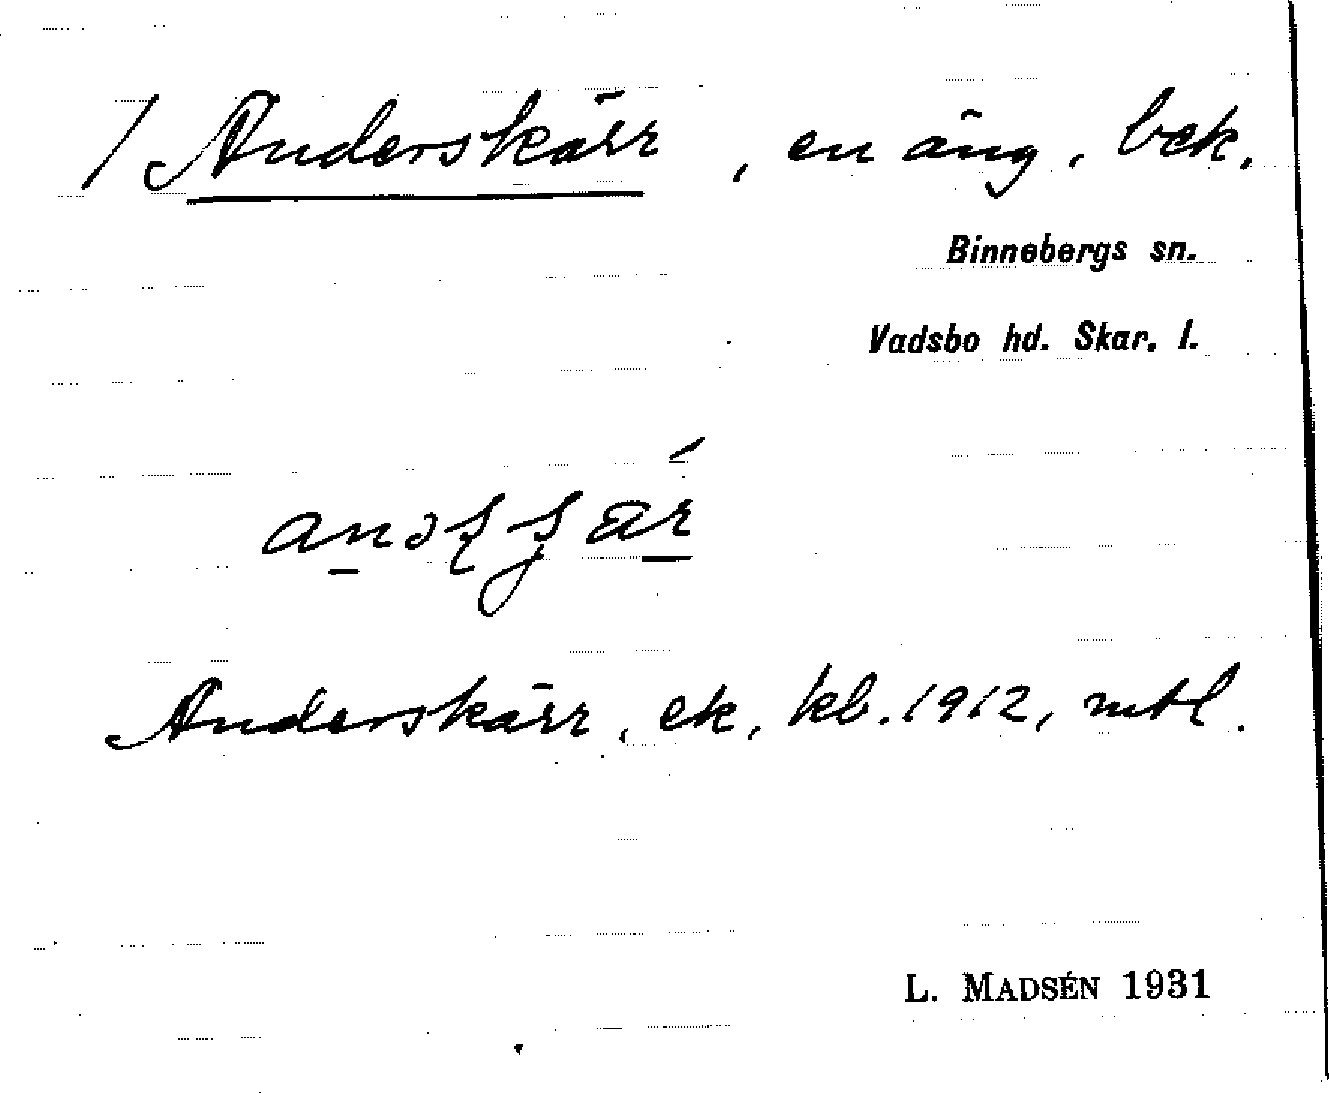 / Anderskärr, en äng, bek.
Binnebergs sn.
Vadsbo hd. Skar. l.
Anderskärr, ek, kb. 1912, mtl.
L. MADSÉN 1931